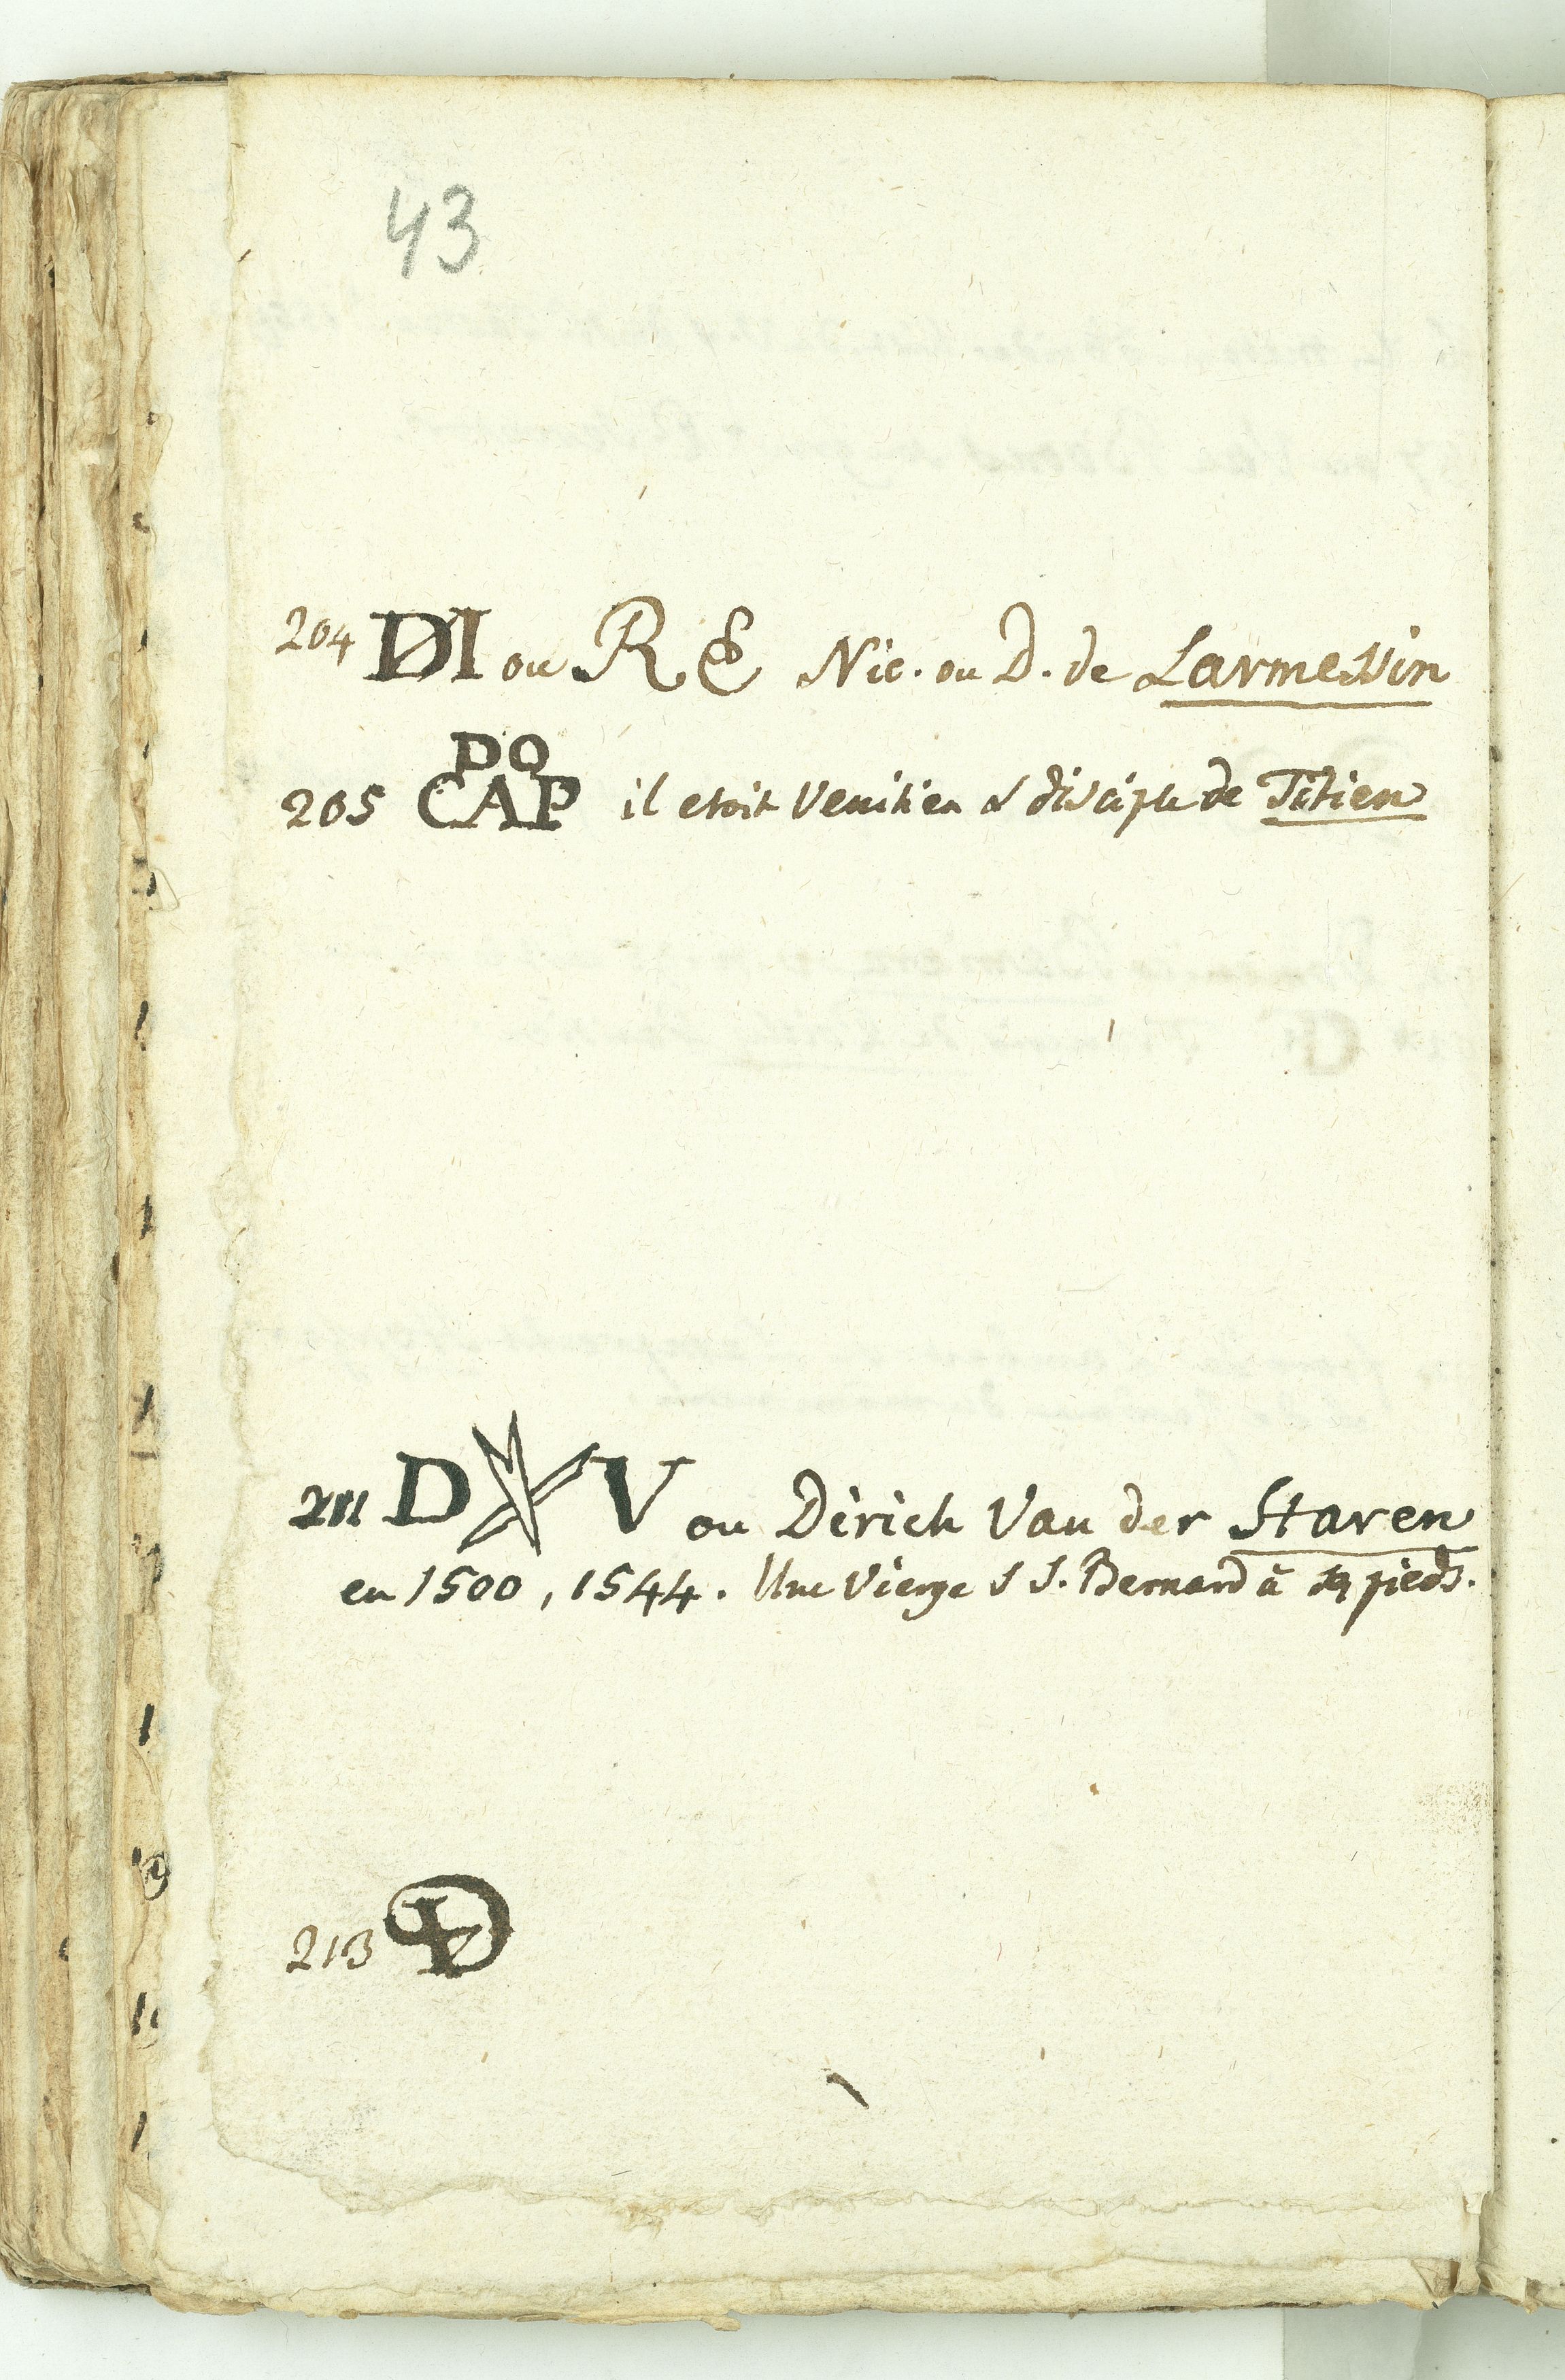 43
204 DI ou R E Nic. ou D. de Larmessin
205 DO CAP il etoit Venitien & disciple de Titien
211 D V ou Dirich Van der Staren
en 1500, 1544. Une Vierge & S. Bernard à ses pieds.
213